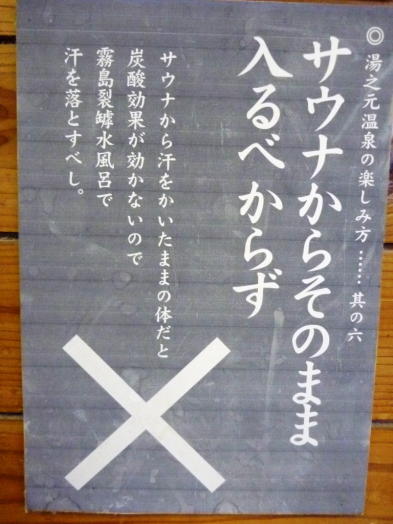 ◎湯之元温泉の楽しみ方……其の六
サウナからそのまま
入るべからず
サウナから汗をかいたままの体だと
炭酸効果が効かないので
霧島裂罅水風呂で
汗を落とすべし。